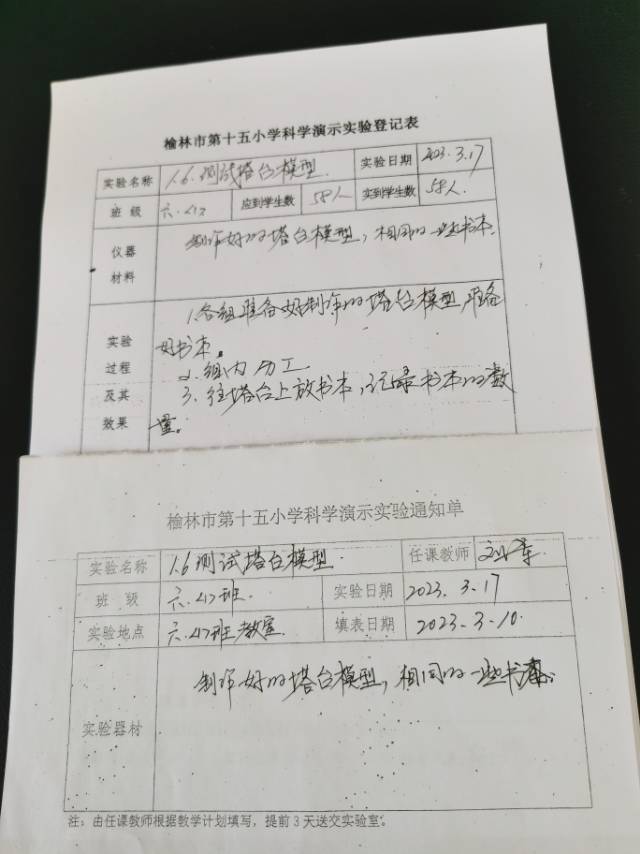 榆林市第十五小学科学演示实验登记表
实验名称 1.6.测试塔台模型. 实验日期 2023.3.17
班 级 六.<1> 应到学生数 58人 实到学生数 58人.
仪器
材料
制作好的塔台模型,相同的一些书本.
实验
过程
及其
效果
1.各组准备好制作的塔台模型,准备
好书本。
2.组内分工
3、往塔台上放书本,记录书本的数
量。
榆林市第十五小学科学演示实验通知单
实验名称 1.6测试塔台模型. 任课教师
班 级 六.<1>班. 实验日期 2023.3.17
实验地点 六.<1>班教室 填表日期 2023.3.10.
实验器材 制作好的塔台模型,相同的一些书本.
注:由任课教师根据教学计划填写,提前3天送交实验室。